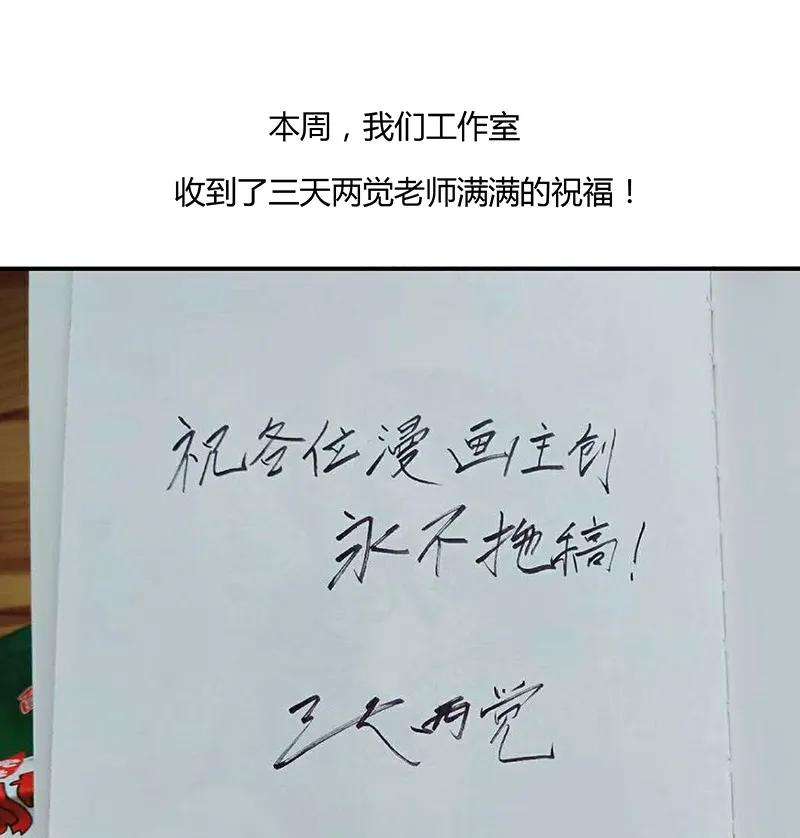 本周，我们工作室
收到了三天两觉老师满满的祝福！
祝各位漫画主创
永不拖稿！
三天两觉